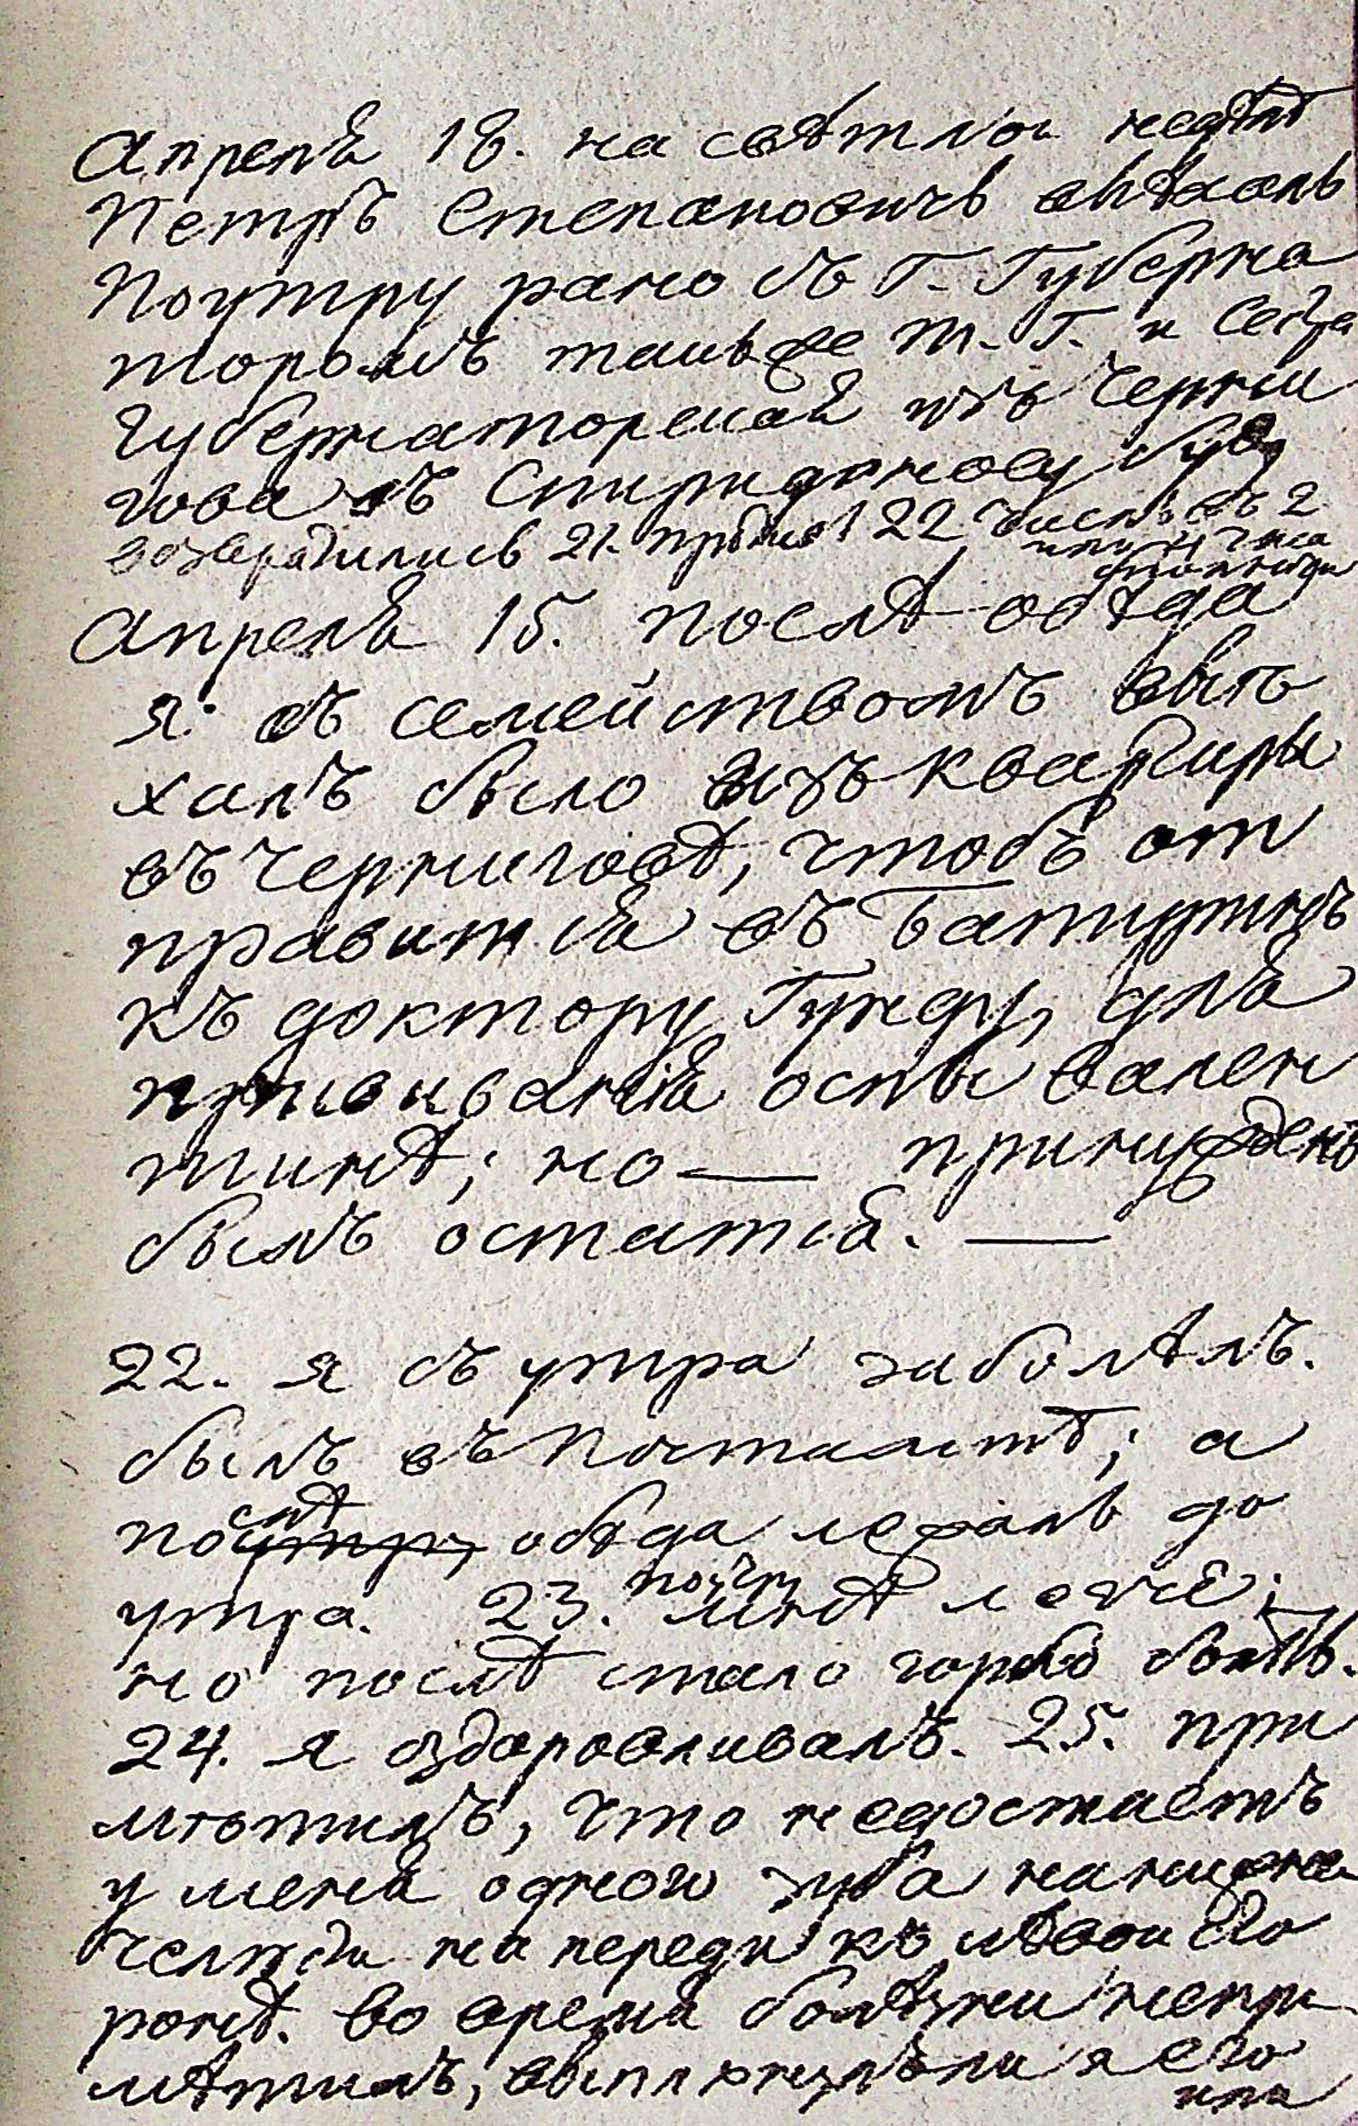 Апреля 18. на свѣтлои недѣлѣ
Петръ Степановичь выѣхалъ
Поутру рано съ Г. Губерна
торомъ такъже т. Г. и
губернаторскай изъ Черни
гова въ Спиридонову буду
возвратились 21. противъ 22 числа въ 2
или 4 часа
Апреля 15. послѣ обѣда
я съ семействомъ выѣ
халъ было изъ квартиры
въ Черниговѣ, чтобъ от
правится въ Батуринъ
къ доктору Гунду, для
прививанія оспы Вален
тинѣ; но — принужденъ
былъ остатся. —
22. я съ утра заболѣлъ.
былъ въ Почтамтѣ; а
послѣ обѣда лежалъ до
утра. 23. поутру мнѣ легче;
но послѣ стало горько болѣть.
24. я оздоровливалъ. 25. при
мѣтилъ, что недостаетъ
у меня одного зуба на нижне
челюсти на переди къ лѣвои сто
ронѣ. во время болѣзни непри
мѣтилъ, выплюнулъ ли я его
или